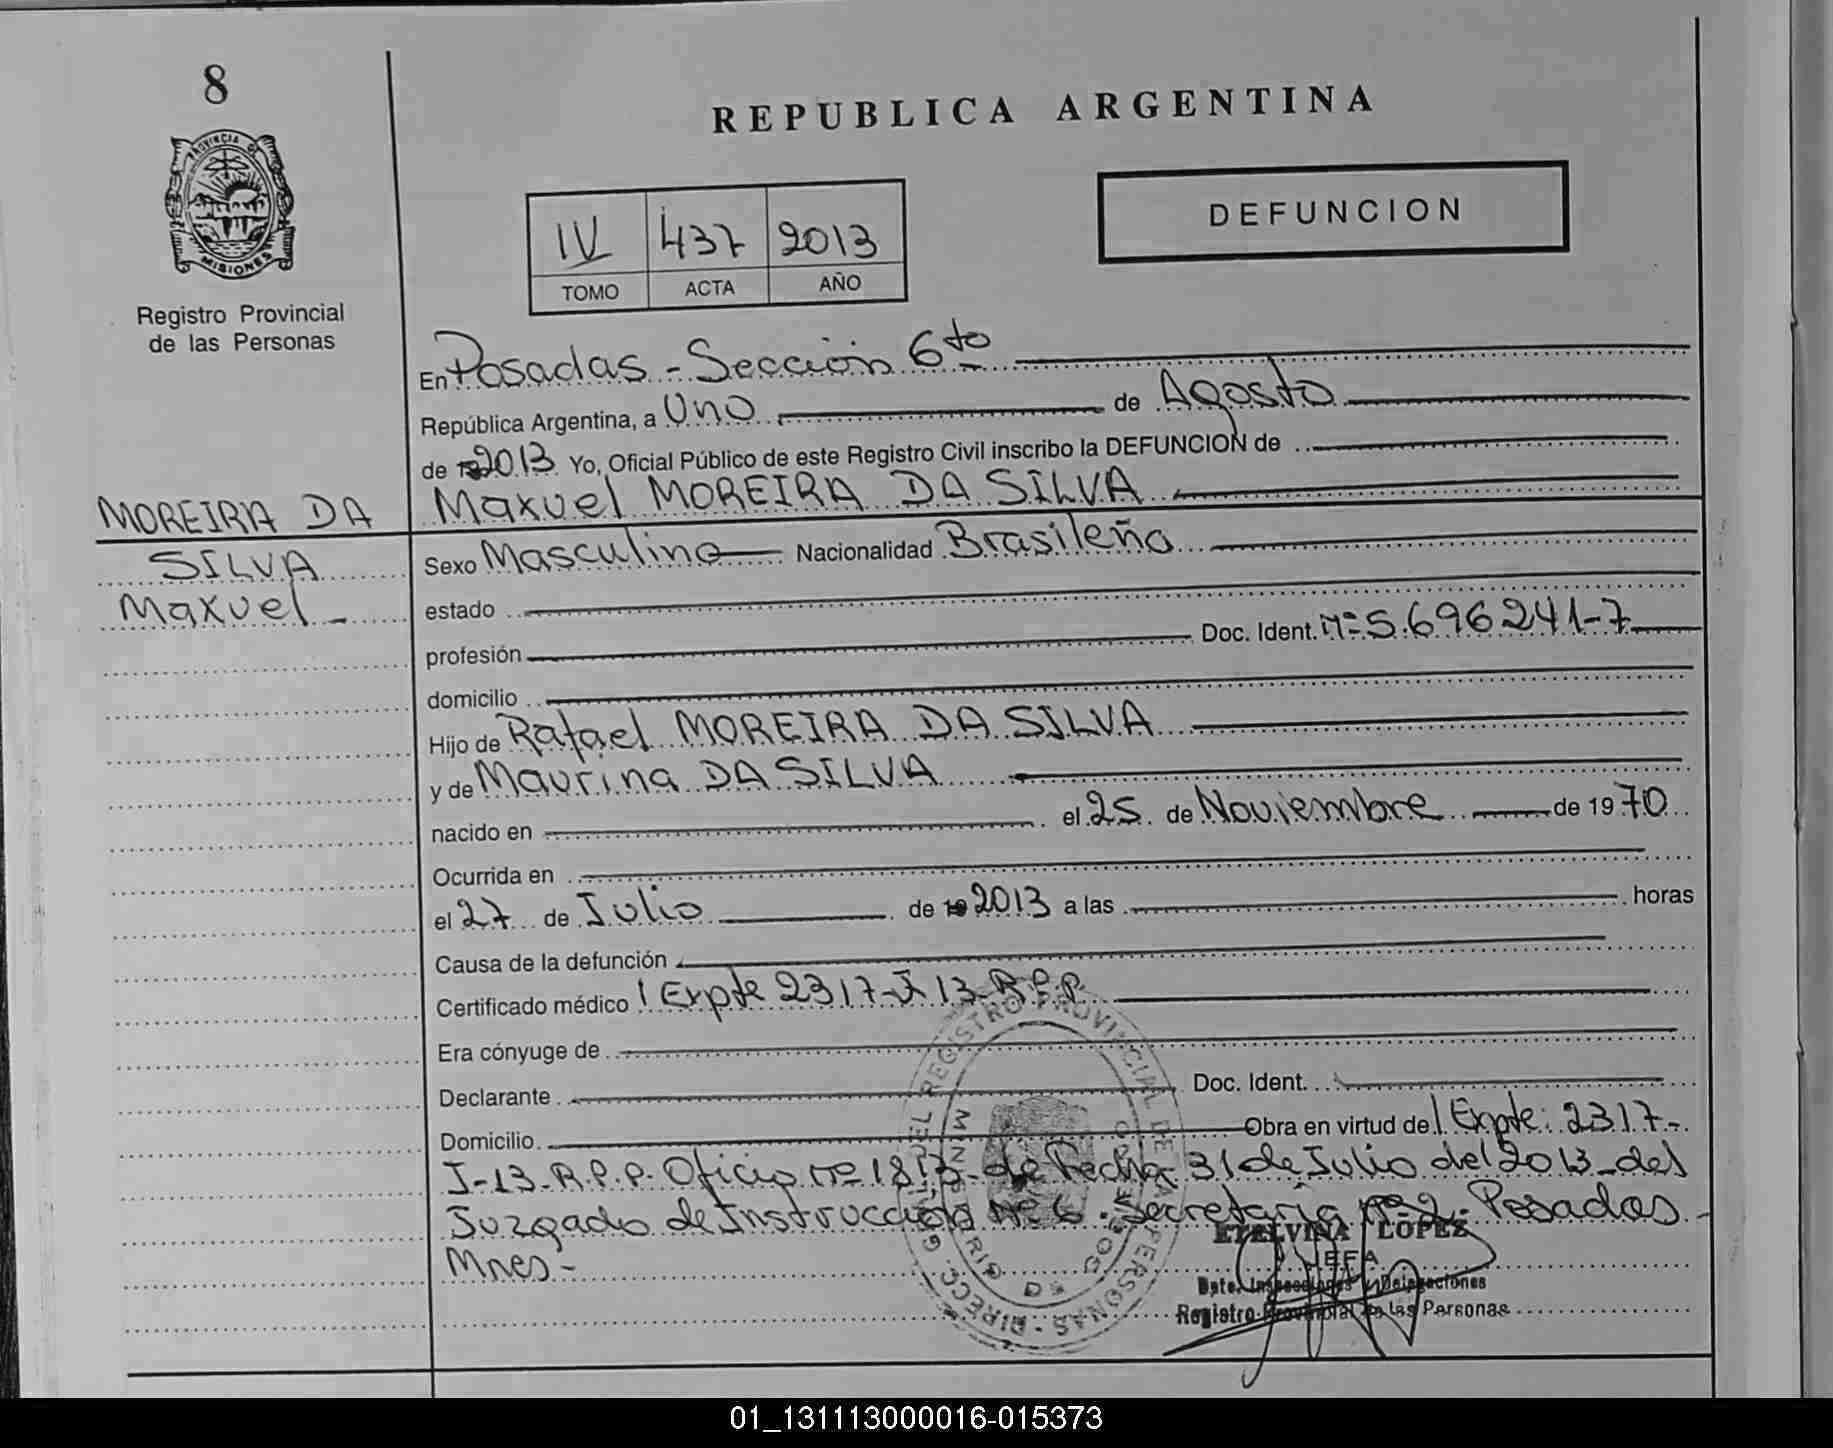 8
REPUBLICA ARGENTINA
PROVINCIA DE
MISIONES
Registro Provincial
de las Personas
IV 437 2013
TOMO ACTA AÑO
DEFUNCION
En Posadas - Sección 6to
República Argentina, a Uno de Agosto
de 2013 Yo, Oficial Público de este Registro Civil inscribo la DEFUNCION de
MOREIRA DA
SILVA
Maxuel -
Maxuel MOREIRA DA SILVA
Sexo Masculino Nacionalidad Brasileño
estado
profesión Doc. Ident. Nº 5.696241-7
domicilio
Hijo de Rafael MOREIRA DA SILVA
y de Maurina DA SILVA
nacido en el 25 de Noviembre de 1970
Ocurrida en
el 27 de Julio de 2013 a las horas
Causa de la defunción
Certificado médico Expte 2317-J 13-R.P.P.
Era cónyuge de
Declarante Doc. Ident.
Domicilio Obra en virtud del Expte: 2317-
J-13-R.P.P. Oficio nº de Fecha 31 de Julio del 2013 del
Juzgado de Instrucción Nº 6. Secretaria nº 2- Posadas -
Mnes-
ETELVINA LOPEZ
JEFA
Dpto. Inspecciones y Delegaciones
Registro Provincial de las Personas
DIRECC. GRAL. DEL REGISTRO PROVINCIAL DE LAS PERSONAS
MINISTERIO DE
01_131113000016-015373